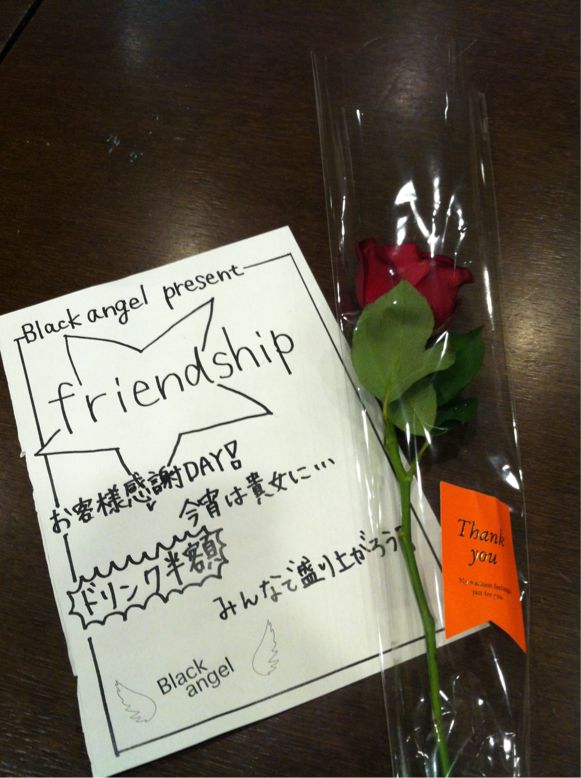 Black angel present
friendship
お客様感謝DAY!
今宵は貴女に…
ドリンク半額
みんなで盛り上がろう
Black
angel
Thank
you
just for you